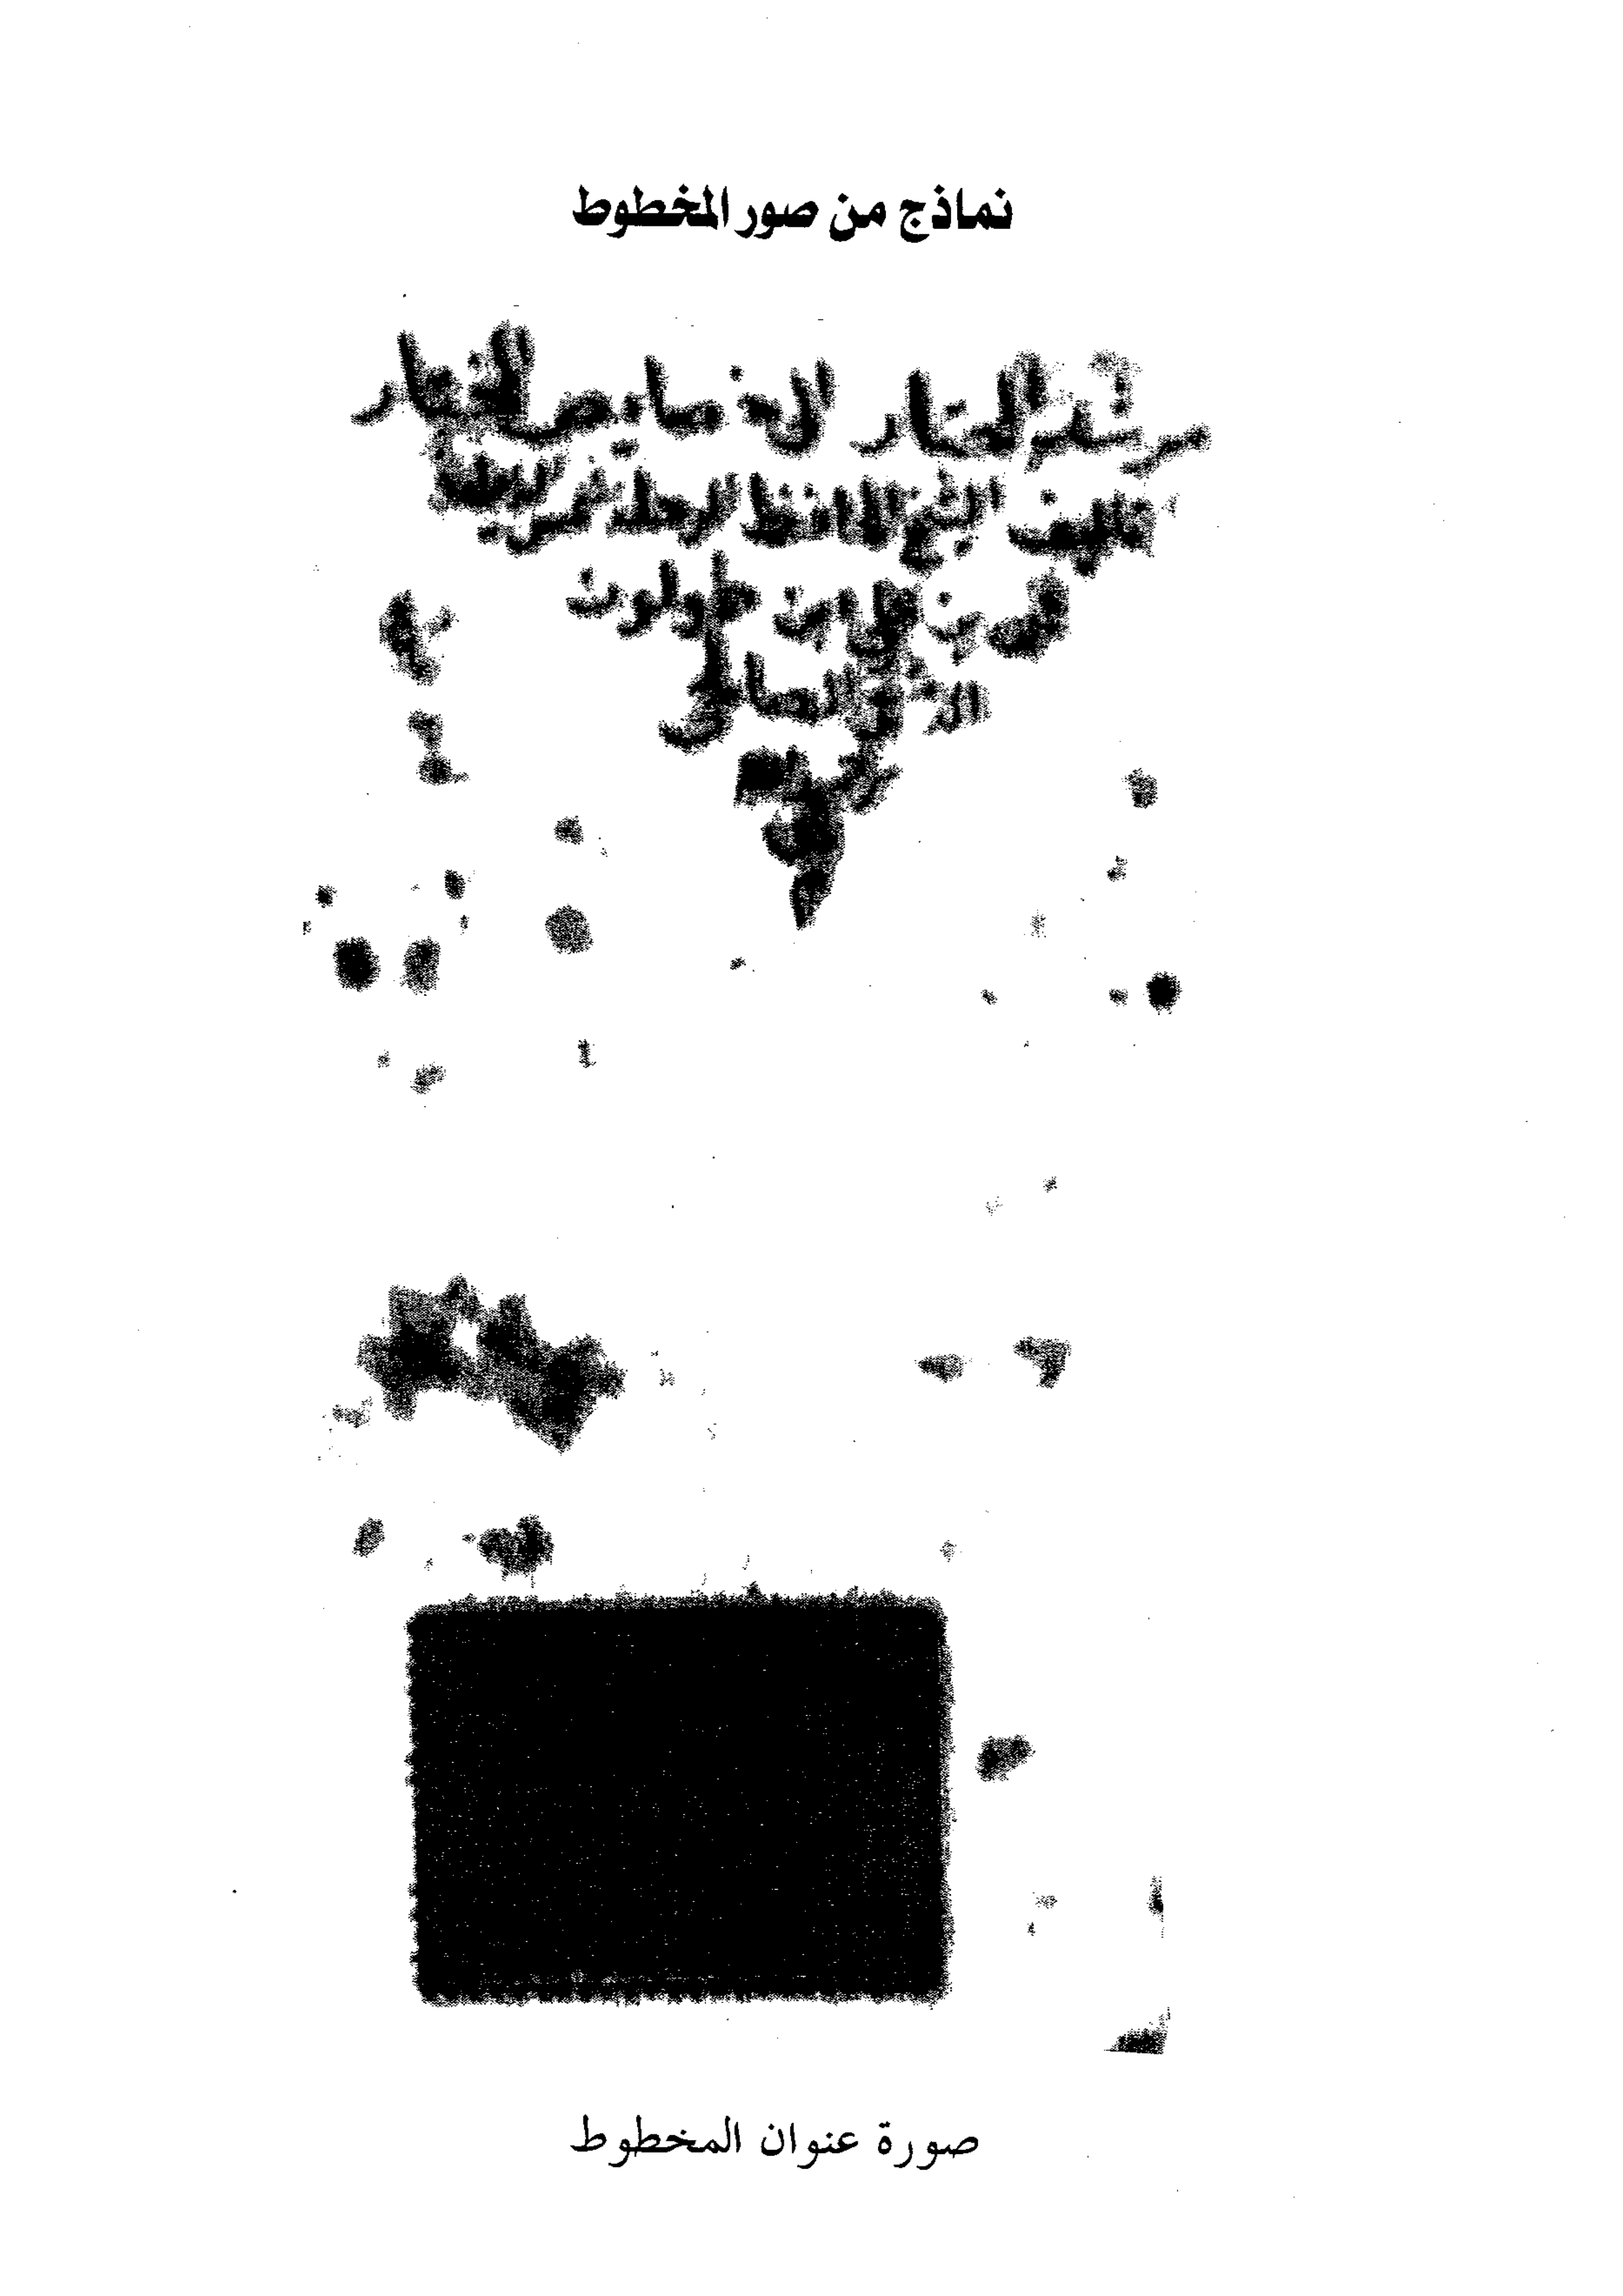 نماذج من صور المخطوط
مرشد المحتار الى خصايص المختار
تاليف الشيخ الحافظ الرحلة شمس الدين
بن علي ابن طولون
الصالحي
صورة عنوان المخطوط